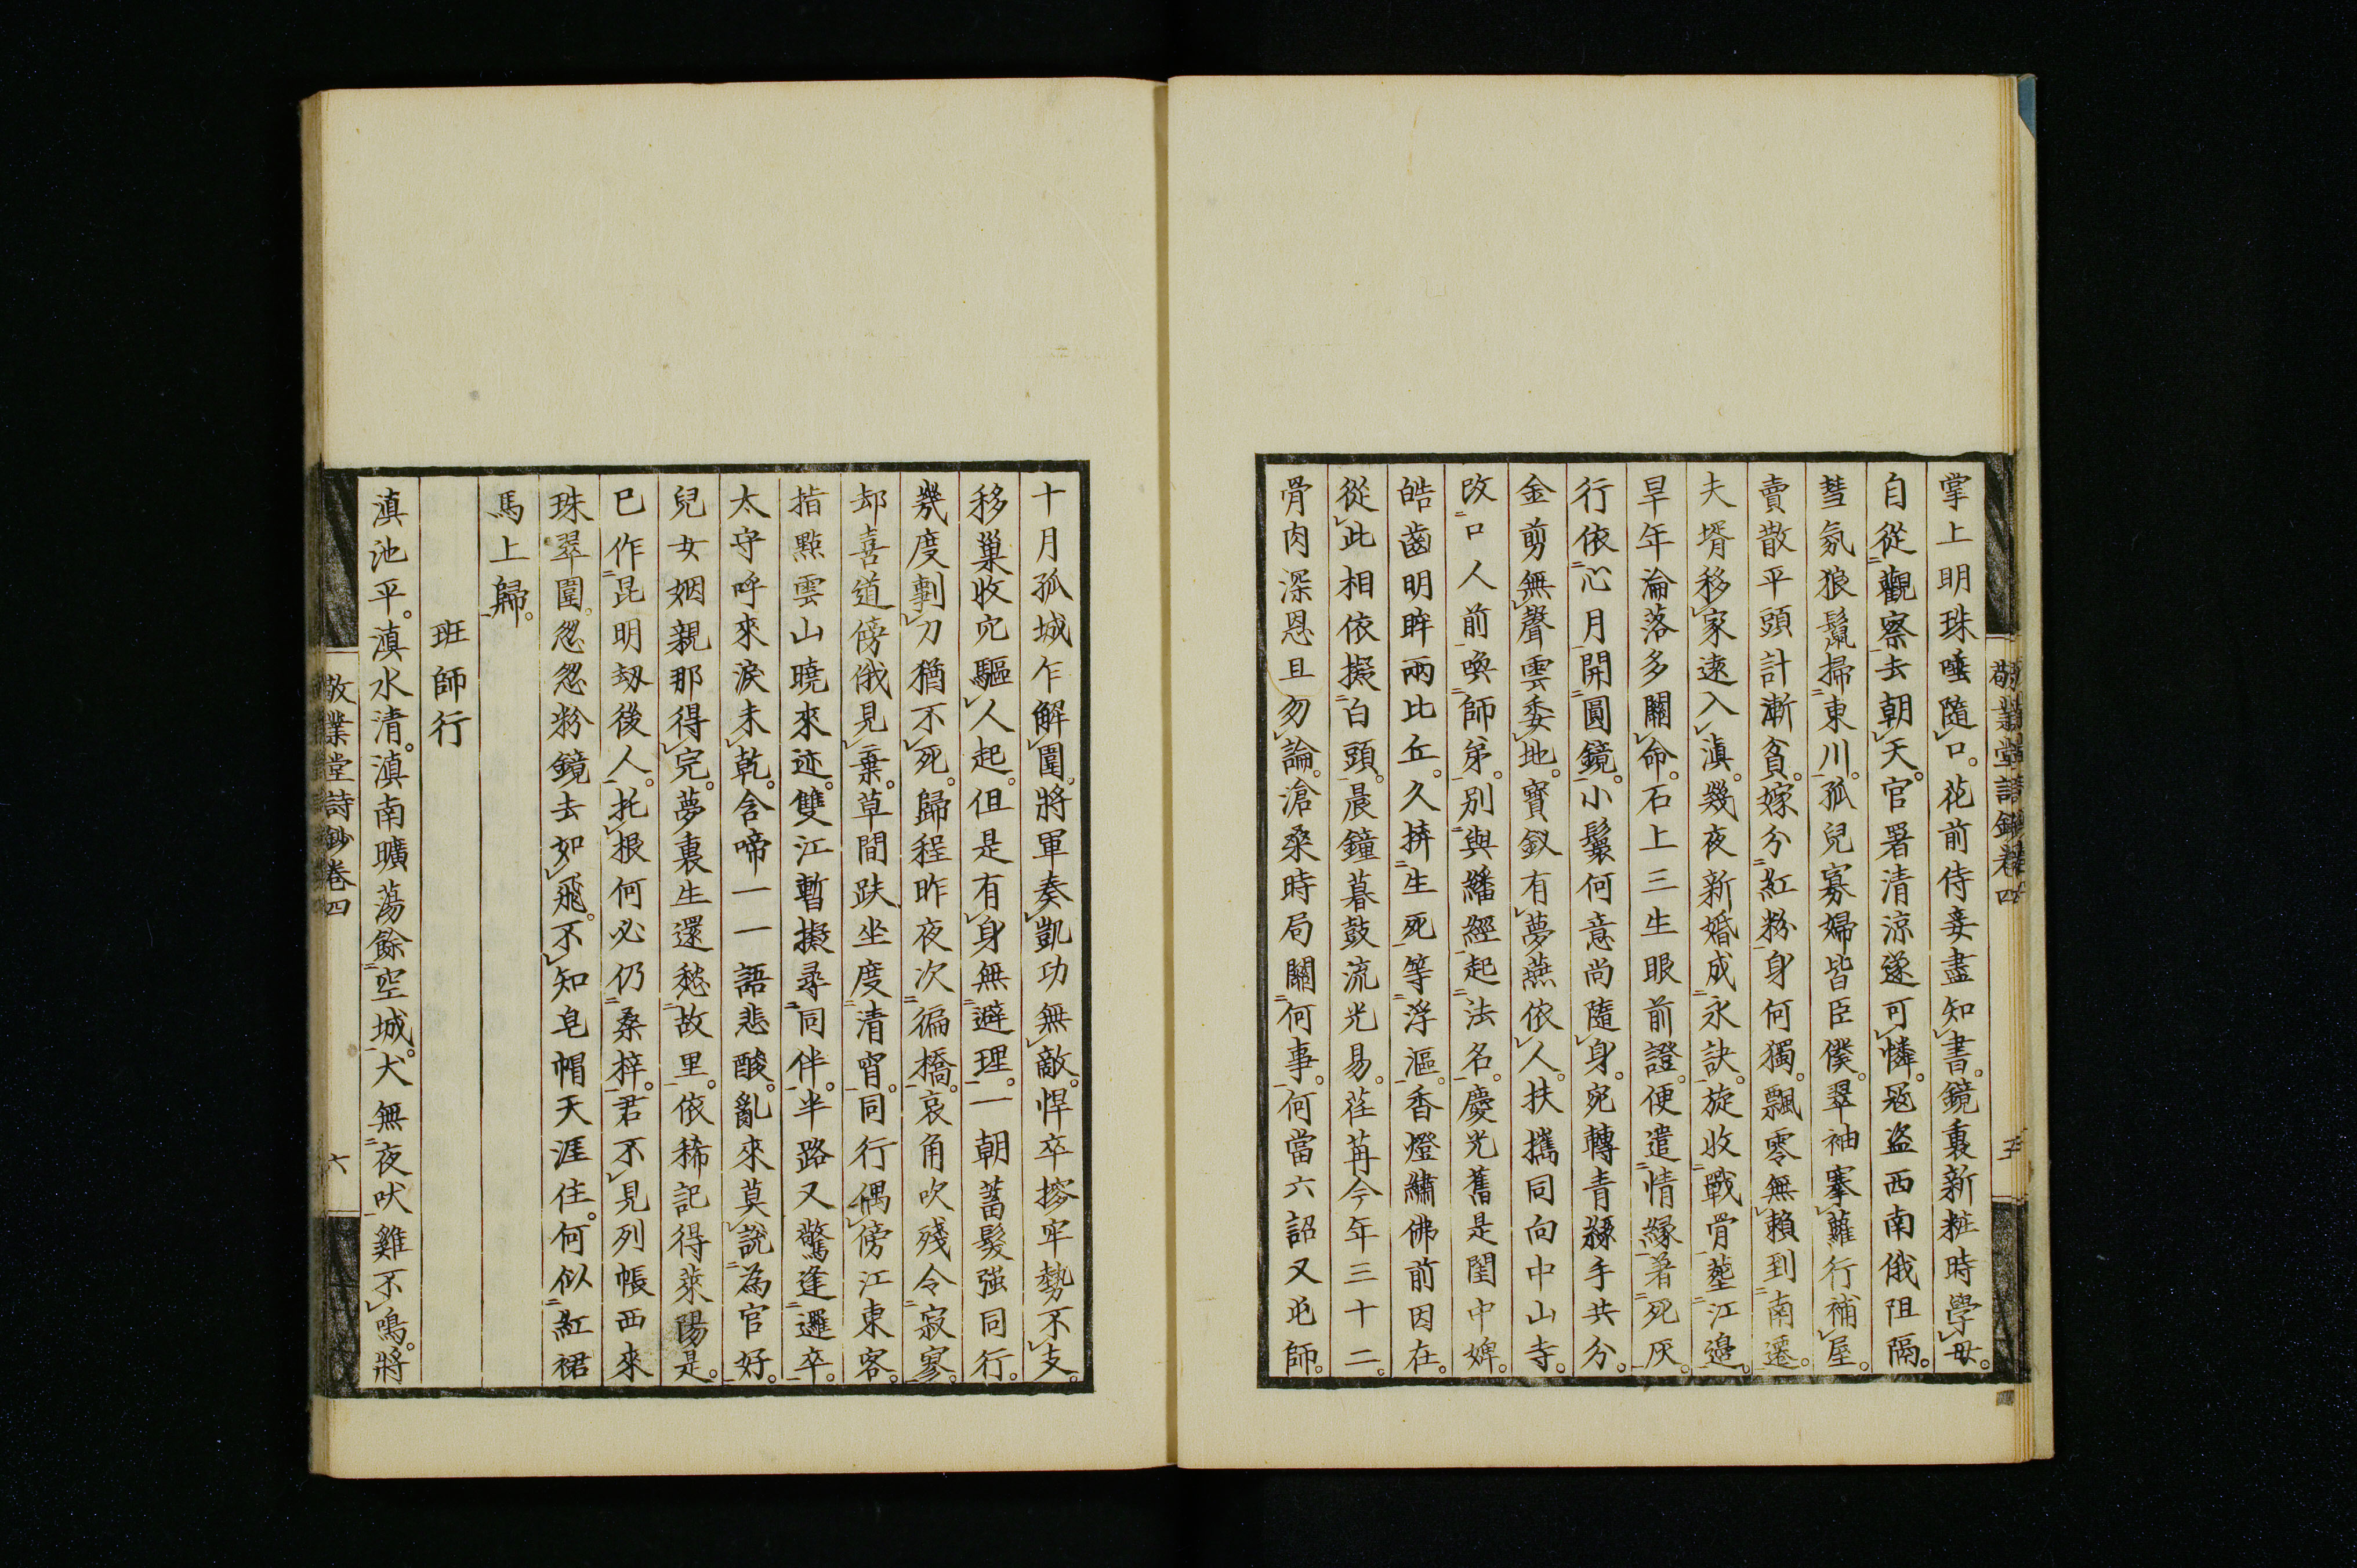 掌上明珠唾隨口。花前侍妾盡知書。鏡裏新粧時學母。
自從觀察去朝天。官署清涼遂可憐。寇盜西南俄阻隔。
彗氛狼鬣掃東川。孤兒寡婦皆臣僕。翠袖搴蘿行補屋。
賣散平頭計漸貧。嫁分紅粉身何獨。飄零無賴到南遷。
夫壻移家遠入滇。幾夜新婚成永訣。旋收戰骨塟江邉。
早年淪落多關命。石上三生眼前證。便遣情緣着死灰。
行依心月開圓鏡。小鬟何意尚隨身。宛轉青繇手共分。
金剪無聲雲委地。寶釵有夢燕依人。扶攜同向中山寺。
改口人前喚師弟。別與繙經起法名。慶光舊是閨中婢。
皓齒明眸兩比丘。久拚生死等浮漚。香燈繡佛前因在。
從此相依擬白頭。晨鐘暮鼓流光易。荏苒今年三十二。
骨肉深恩且勿論。滄桑時局關何事。何當六詔又屯師。
敬業堂詩鈔卷四 五
十月孤城乍解圍。將軍奏凱功無敵。悍卒撈牢勢不支。
移巢收穴驅人起。但是有身無避理。一朝蓄髮強同行。
幾度剚刀猶不死。歸程昨夜次徧橋。哀角吹殘令寂寥。
却喜道傍俄見棄。草間趺坐度清宵。同行偶傍江東客。
指點雲山曉來迹。雙江暫擬尋同伴。半路又驚逢邏卒。
太守呼來淚未乾。含啼一一語悲酸。亂來莫說為官好。
兒女姻親那得完。夢裏生還愁故里。依稀記得萊陽是。
已作昆明刼後人。托根何必仍桑梓。君不見列帳西來
珠翠圍。忽忽粉鏡去如飛。不知皂帽天涯住。何似紅裙
馬上歸。
班師行
滇池平。滇水清。滇南曠蕩餘空城。犬無夜吠雞不鳴。將
敬業堂詩鈔卷四 六